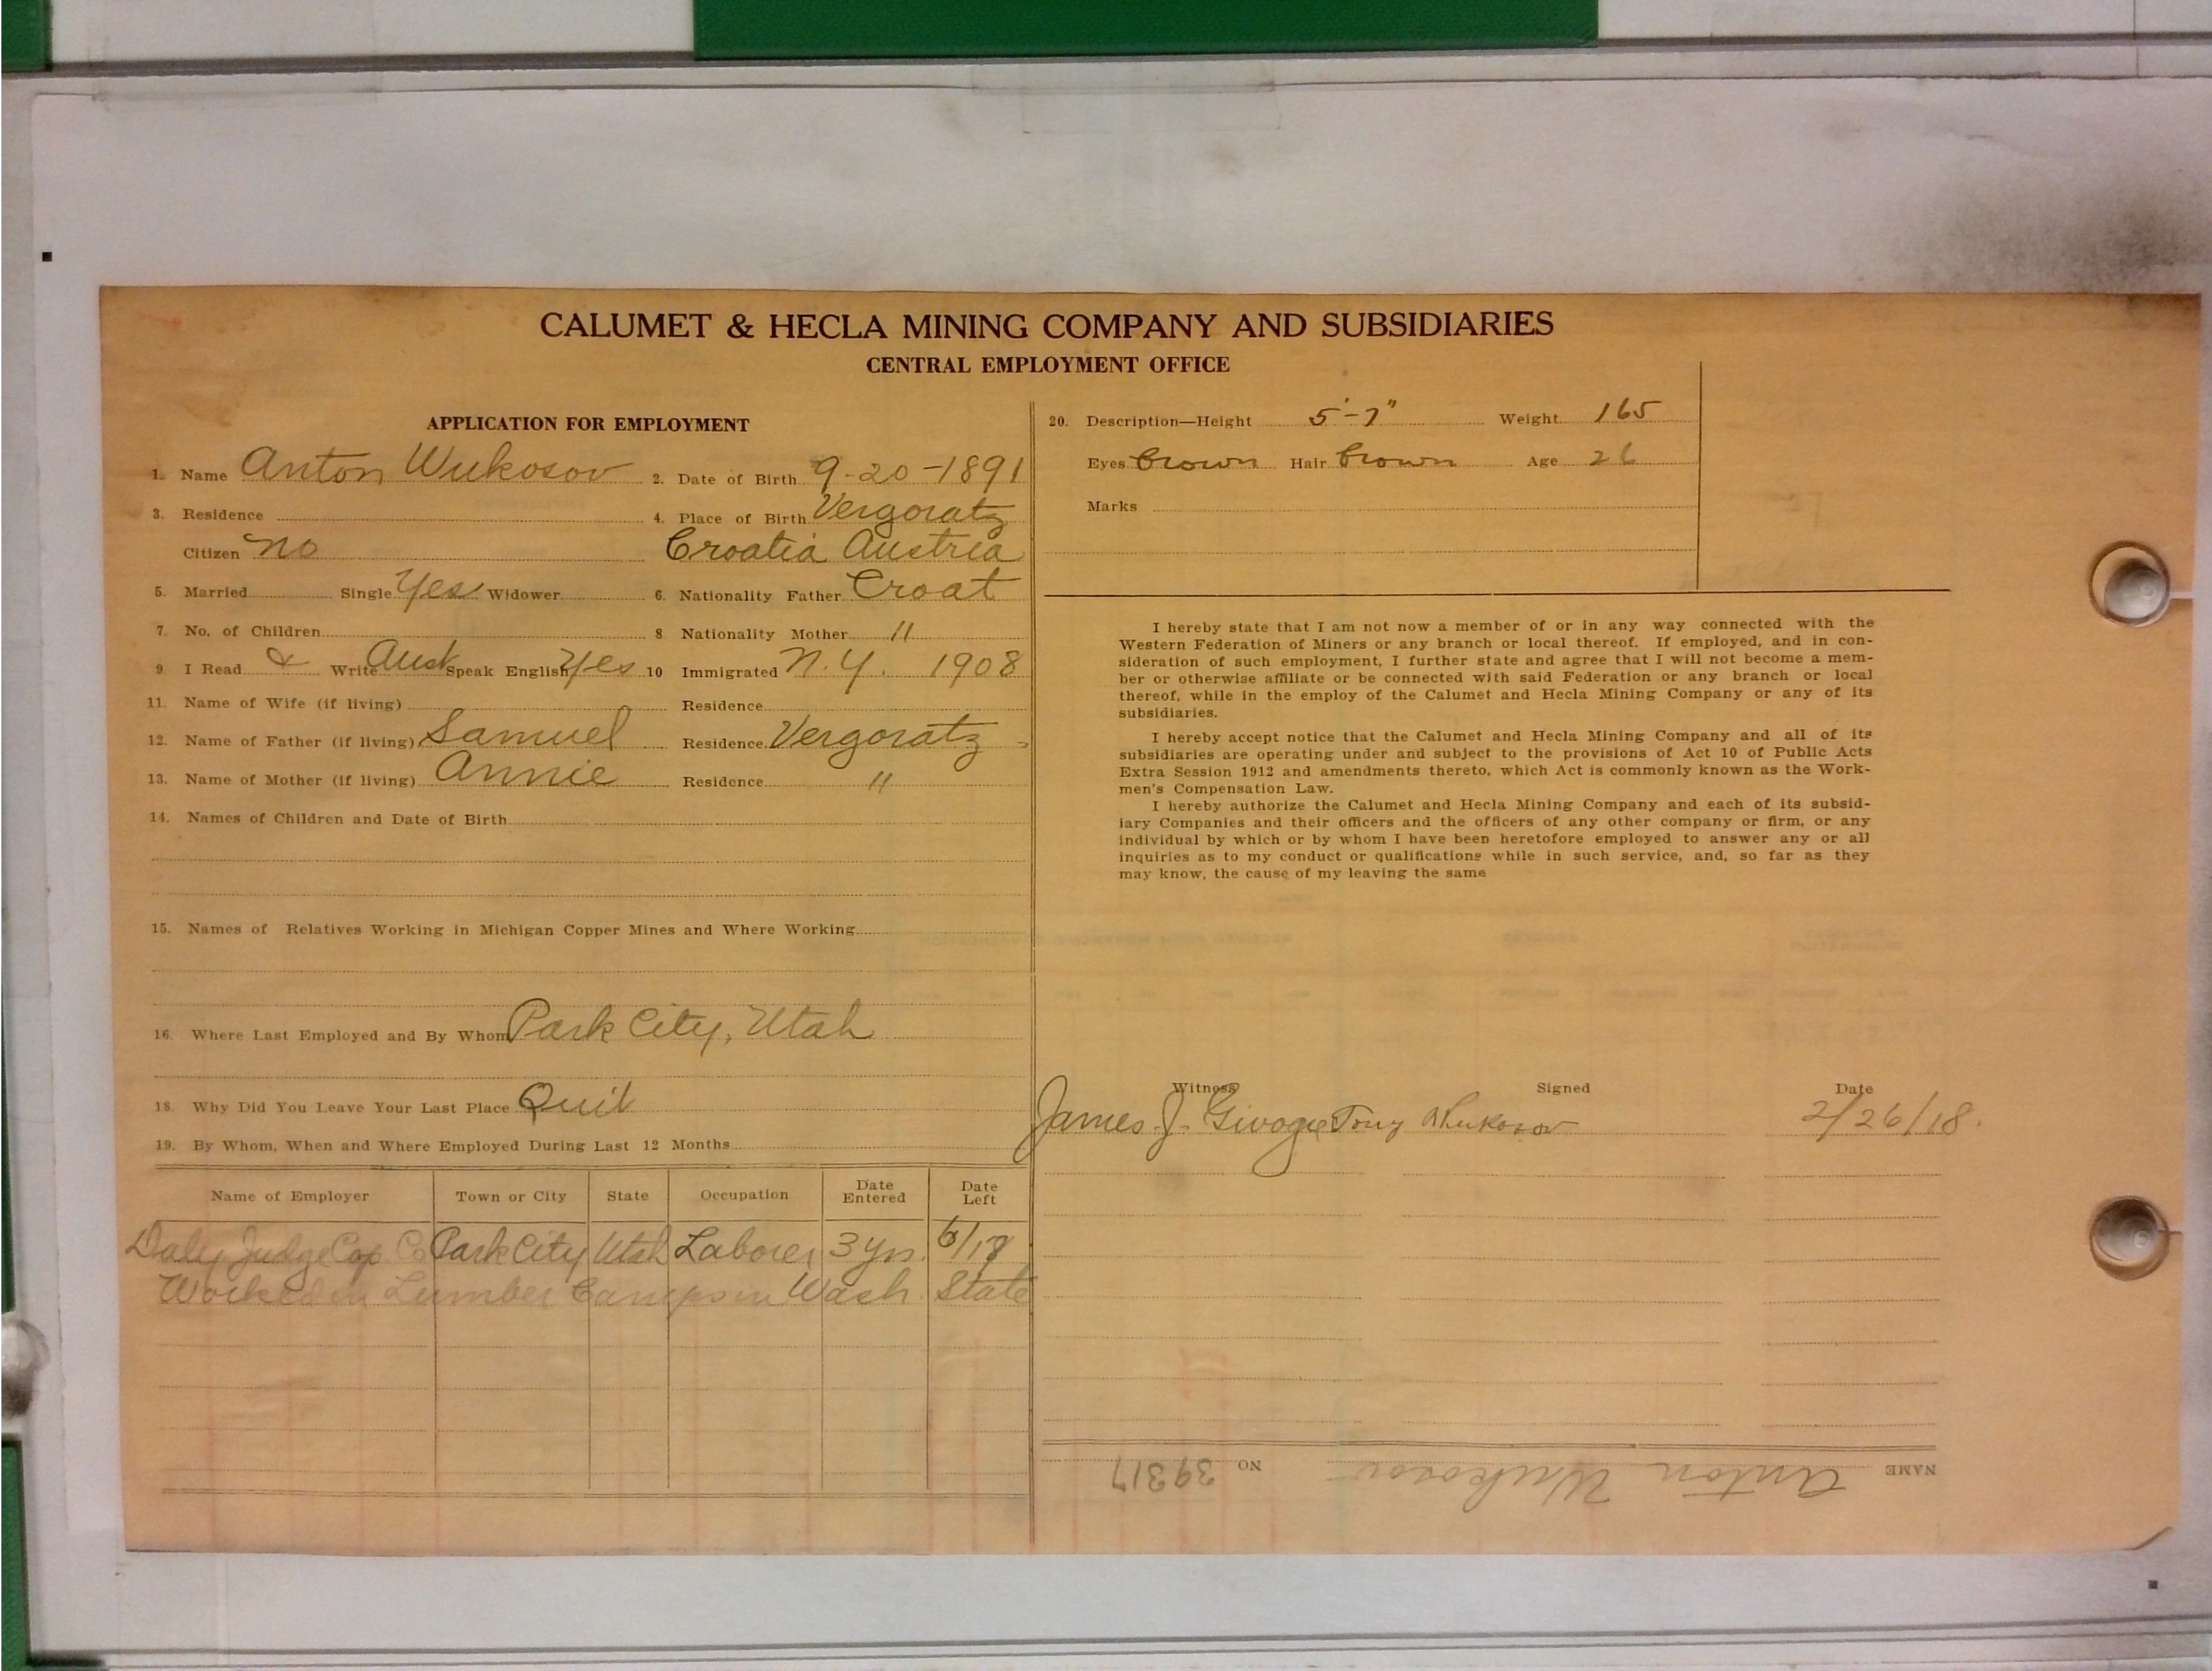 CALUMET & HECLA MINING COMPANY AND SUBSIDIARIES
CENTRAL EMPLOYMENT OFFICE
APPLICATION FOR EMPLOYMENT
1. Name Anton Wukosov 2. Date of Birth 9-20-1891
3. Residence 4. Place of Birth Vergoratz
Citizen no Croatia Austria
5. Married Single Yes Widower 6. Nationality Father Croat
7. No. of Children 8 Nationality Mother "
9 I Read & Write Aust Speak English Yes 10 Immigrated N.Y. 1908
11. Name of Wife (if living) Residence
12. Name of Father (if living) Samuel Residence Vergoratz
13. Name of Mother (if living) Annie Residence "
14. Names of Children and Date of Birth
15. Names of Relatives Working in Michigan Copper Mines and Where Working
16. Where Last Employed and By Whom Park City, Utah
18. Why Did You Leave Your Last Place Quit
19. By Whom, When and Where Employed During Last 12 Months
Name of Employer Town or City State Occupation Date Entered Date Left
Daly Judge Cop Co Park City Utah Laborer 3 yrs. 6/17
Worked in Lumber Camps in Wash. State
20. Description—Height 5'-7" Weight 165
Eyes Brown Hair Brown Age 26
Marks
I hereby state that I am not now a member of or in any way connected with the
Western Federation of Miners or any branch or local thereof. If employed, and in con-
sideration of such employment, I further state and agree that I will not become a mem-
ber or otherwise affiliate or be connected with said Federation or any branch or local
thereof, while in the employ of the Calumet and Hecla Mining Company or any of its
subsidiaries.
I hereby accept notice that the Calumet and Hecla Mining Company and all of its
subsidiaries are operating under and subject to the provisions of Act 10 of Public Acts
Extra Session 1912 and amendments thereto, which Act is commonly known as the Work-
men's Compensation Law.
I hereby authorize the Calumet and Hecla Mining Company and each of its subsid-
iary Companies and their officers and the officers of any other company or firm, or any
individual by which or by whom I have been heretofore employed to answer any or all
inquiries as to my conduct or qualifications while in such service, and, so far as they
may know, the cause of my leaving the same
Witness Signed Date
James J. Tony Wukosov 2/26/18.
NAME Anton Wukosov NO 39317